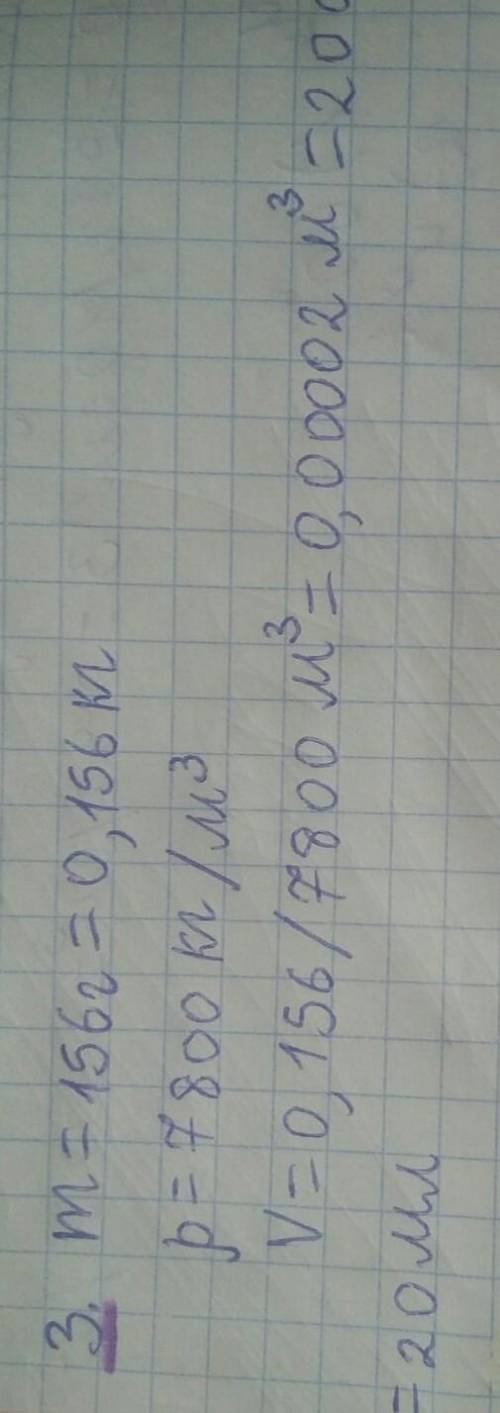 3. m=156г=0,156кг
p=7800 кг/м³
V=0,156/7800 м³=0,00002 м³=20
=20 мл